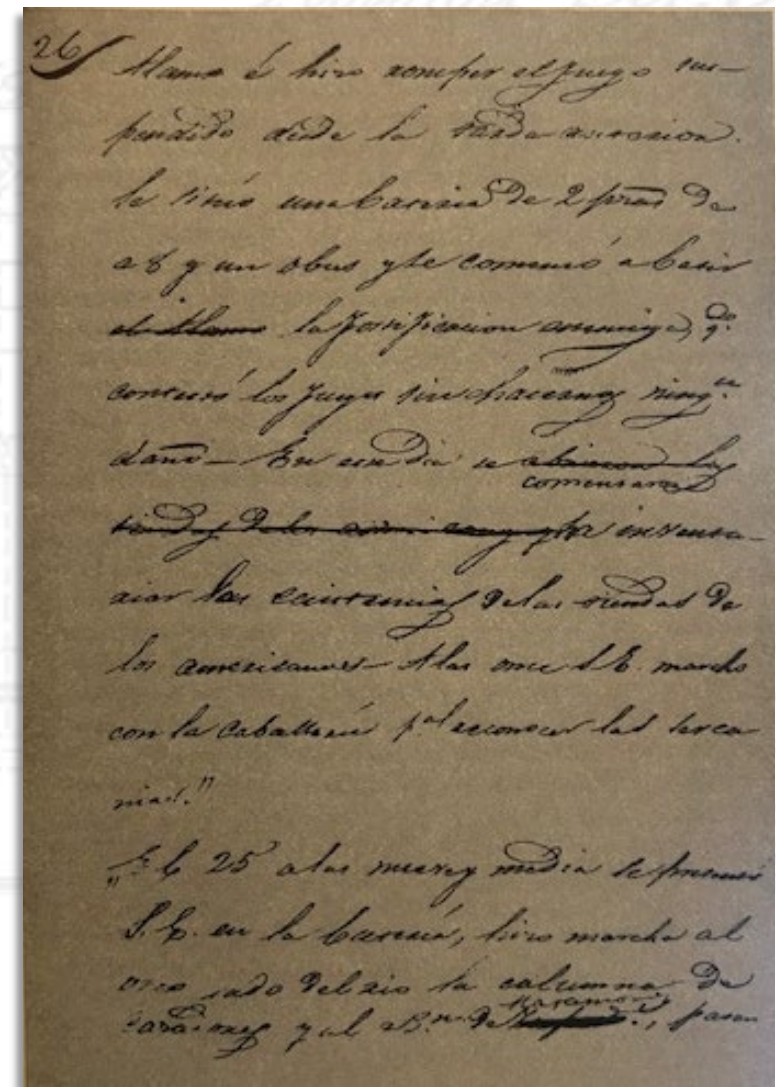 26
Alamo é hizo romper el fuego sus-
pendido desde la tarde anterior.
Se situó una bateria de 2 piezas de
a 8 y un obus y se comensó a batir
el Alamo la fortificacion enemiga, qdo
contestó los fuegos sin hacernos ningn
daño – En este dia se abrieron las
comensaron
tiendas de los americanos y pa inventa-
riar las existencias de las tiendas de
los americanos – A las once S. E. marchó
con la caballeria pa reconocer las serca-
nias."
"El 25 a las nueve y media se presentó
S. E. en la bateria, hizo marchar al
otro lado del rio la columna de
Matamoros
casadores y al Bn. de, pasan